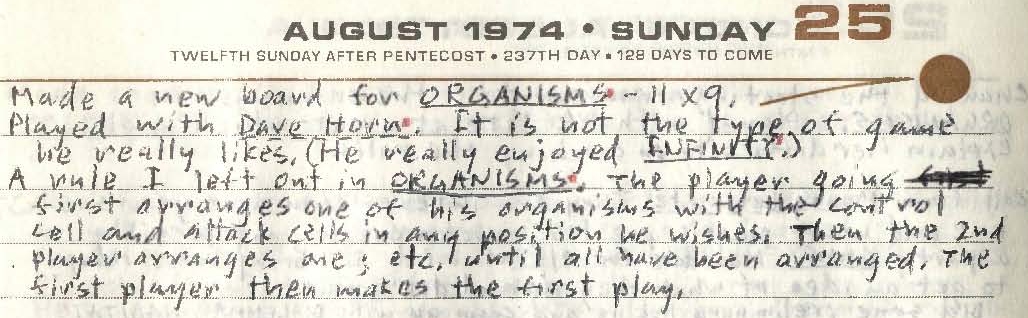 AUGUST 1974 • SUNDAY 25
TWELFTH SUNDAY AFTER PENTECOST • 237TH DAY • 128 DAYS TO COME
Made a new board for ORGANISMS - 11 x 9.
Played with Dave Horn. It is not the type of game
he really likes. (He really enjoyed INFINITY.)
A rule I left out in ORGANISMS. The player going
first arranges one of his organisms with the control
cell and attack cells in any position he wishes. Then the 2nd
player arranges one; etc. until all have been arranged. The
first player then makes the first play.